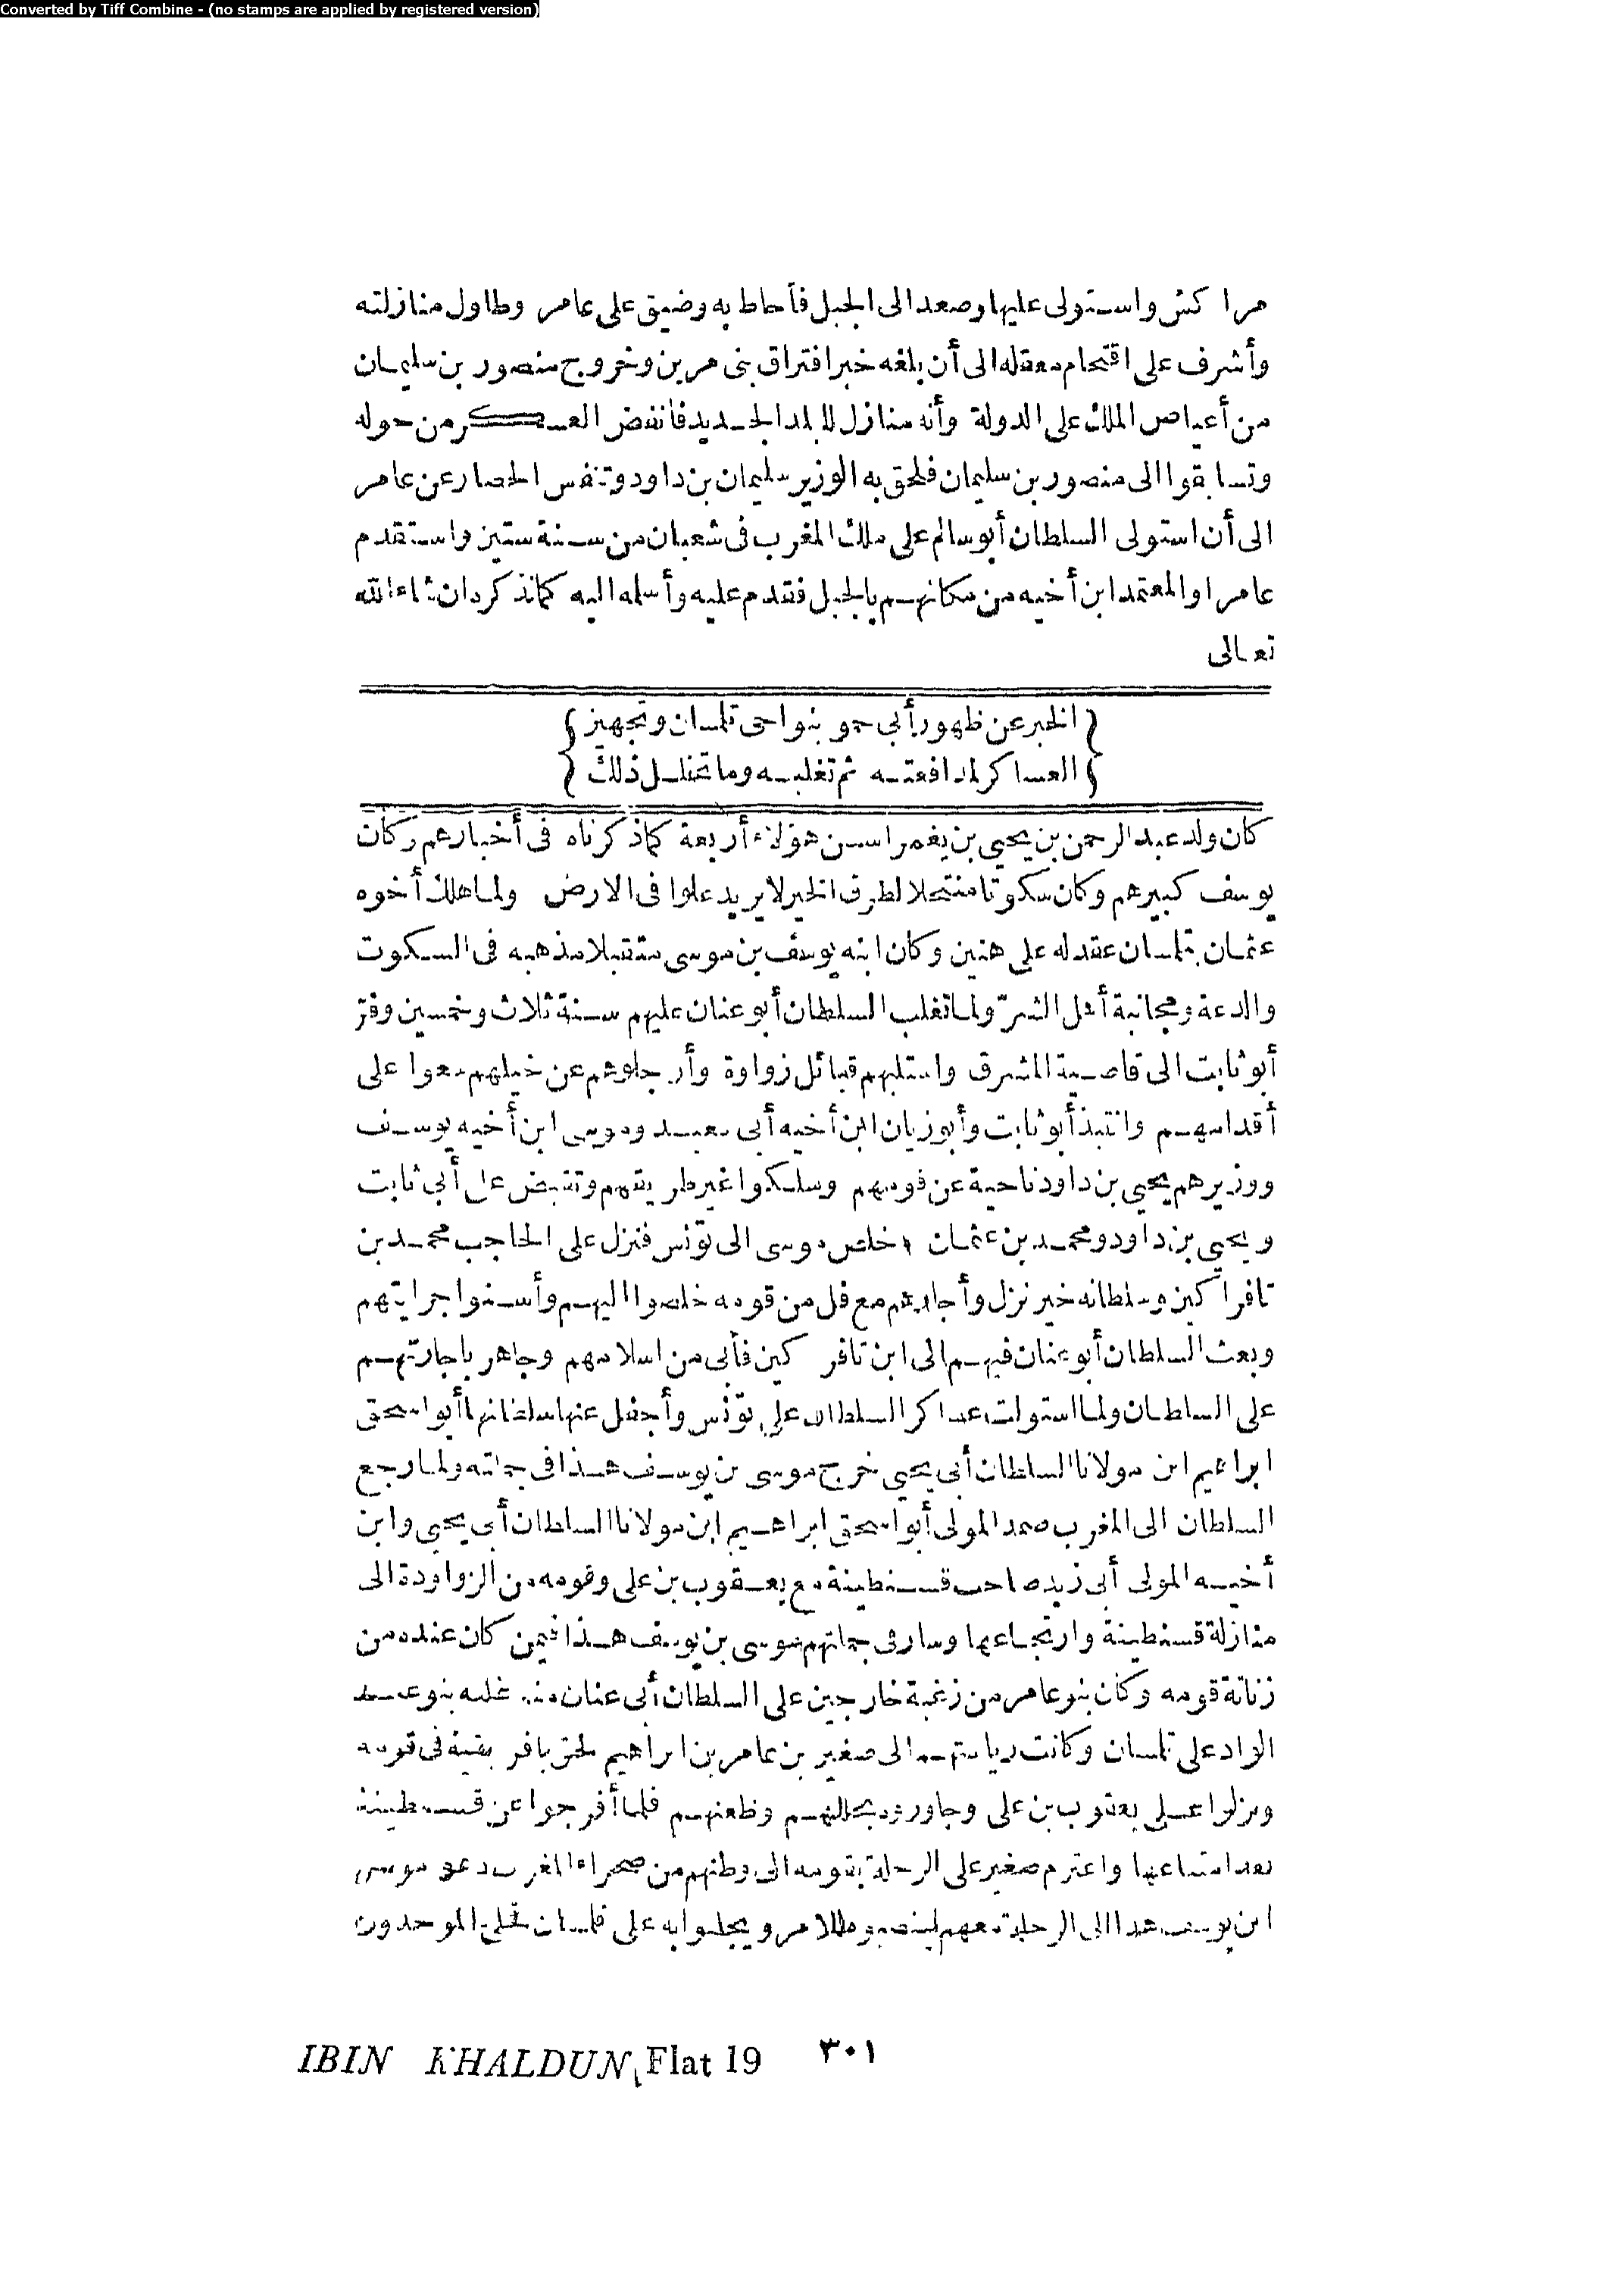 Converted by Tiff Combine - (no stamps are applied by registered version)
مراكش واستولى عليها وصعد الى الجبل فأحاط به وضيق على عامر وطاول منازلته
وأشرف على اقتحام معقله الى أن بلغه خبر افتراق بنى مرين وخروج منصور بن سليمان
من أعياص الملك على الدولة وأنه منازل للبلد الجديد فانفض العسكر من حوله
وتسابقوا الى منصور بن سليمان فلحق به الوزير سليمان بن داود وتنفس الحصار عن عامر
الى أن استولى السلطان أبو سالم على ملك المغرب فى شعبان من سنة ستين واستقدم
عامرا والمعتمد ابن أخيه من مكانهم بالجبل فقدم عليه وأسلمه اليه كما نذكر ان شاء الله
تعالى
{ الخبر عن ظهور أبى حمو بنواحى تلمسان وتجهيز }
{ العساكر لمدافعته ثم تغلبه وما تخلل ذلك }
كان ولد عبد الرحمن بن يحيى بن يغمراسن هؤلاء أربعة كما ذكرناه فى أخبارهم وكان
يوسف كبيرهم وكان سكوتا منتحلا لطرق الخير لا يريد علوا فى الارض ولما هلك أخوه
عثمان بتلمسان عقد له على هنين وكان ابنه يوسف بن موسى متقبلا مذهبه فى السكوت
والدعة ومجانبة أهل الشرّ ولما تغلب السلطان أبو عنان عليهم سنة ثلاث وخمسين وفرّ
أبو ثابت الى قاصية المشرق واستلبهم قبائل زواوة وأرجلوهم عن خيلهم سعوا على
أقدامهم وانتبذ أبو ثابت وأبو زيان ابن أخيه أبى سعيد وموسى ابن أخيه يوسف
ووزيرهم يحيى بن داود ناحية عن قومهم وسلكوا غير طريقهم وتقبض على أبى ثابت
ويحيى بن داود ومحمد بن عثمان وخلص موسى الى تونس فنزل على الحاجب محمد بن
تافراكين وسلطانه خير نزل وأجاروهم مع فل من قومه خلصوا اليهم وأسنوا جرايتهم
وبعث السلطان أبو عنان فيهم الى ابن تافر كين فأبى من اسلامهم وجاهر باجارتهم
على السلطان ولما استولت عساكر السلطان على تونس وأجفل عنها سلطانها أبو اسحق
ابراهيم ابن مولانا السلطان أبى يحيى خرج موسى بن يوسف هذا فى جملته ولما رجع
السلطان الى المغرب صمد المولى أبو اسحق ابراهيم ابن مولانا السلطان أبى يحيى وابن
أخيه المولى أبى زيد صاحب قسنطينة مع يعقوب بن على وقومه من الزواودة الى
منازلة قسنطينة وارتجاعها وسار فى جملتهم موسى بن يوسف هذا فيمن كان عنده من
زناتة قومه وكان بنو عامر من زغبة خارجين على السلطان أبى عنان منذ غلبه بنو عبد
الواد على تلمسان وكانت رياستهم الى صغير بن عامر بن ابراهيم لحق بافريقية فى قومه
ونزلوا على يعقوب بن على وجاوروه بحللهم وظعنهم فلما أفرجوا عن قسنطينة
بعد امتناعها واعتزم صغير على الرحلة بقومه الى وطنهم من صحراء المغرب دعو موسى
ابن يوسف هذا الى الرحلة معهم لينصبوه للامر ويجلبوا به على تلمسان فخلى الموحدون
IBIN KHALDUN, Flat 19 ٣٠١